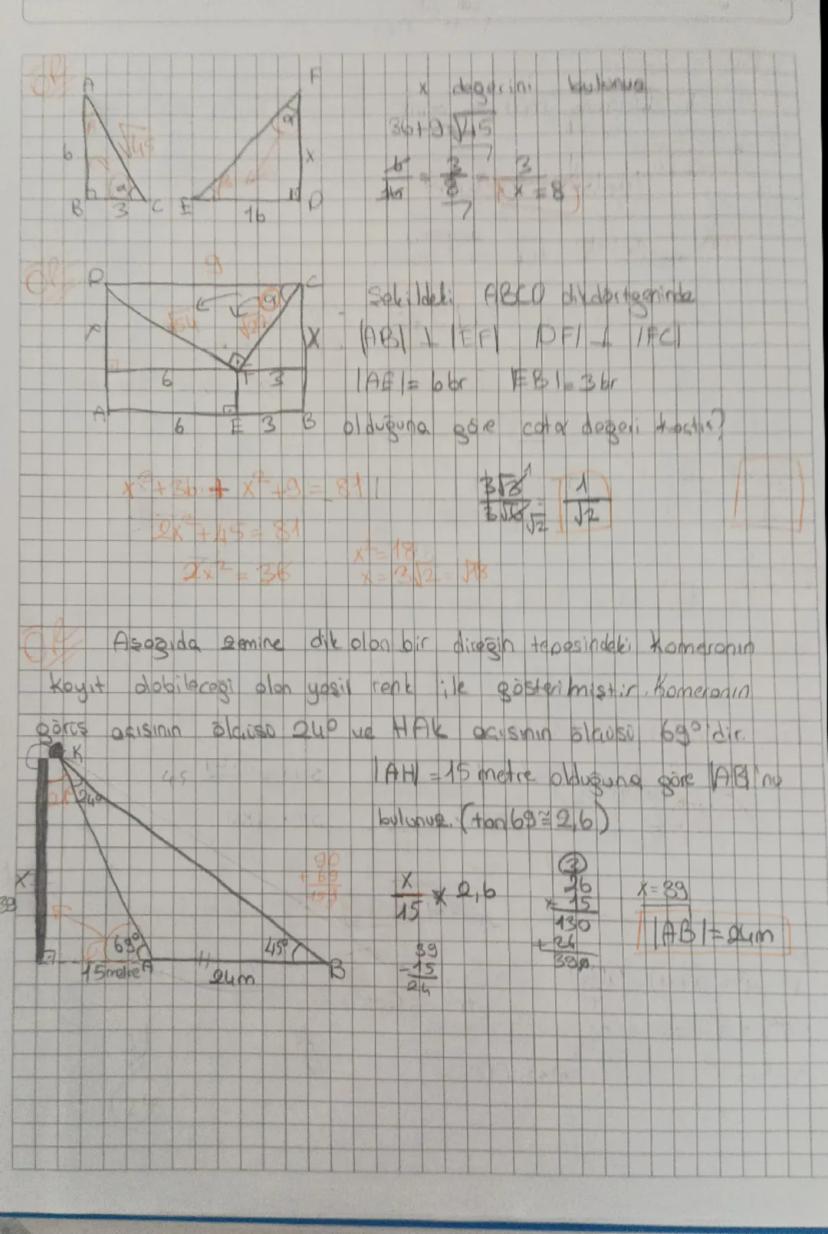 Ör
A
6
√45
a
B
3
C
F
a
x
E
16
D
x değerini bulunuz
36+9 √45
6/16 = 3/8 = 3/x = 8
Ör
9
D
C
a
x
x
6
F
3
A
6
E
3
B
Şekildeki ABCD dikdörtgeninde
|AB| ⊥ |EF| |DF| ⊥ |FC|
|AE|= 6br |EB|= 3br
olduğuna göre cota değeri kaçtır?
x²+36 + x²+9 = 81
2x²+45 = 81
2x² = 36
x²=18
x = 3√2 = √18
1/√2
Ör
Aşağıda zemine dik olan bir direğin tepesindeki kameranın
kayıt alabileceği alan yeşil renk ile gösterilmiştir. Kameranın
görüş açısının ölçüsü 24° ve HAK açısının ölçüsü 69°'dir.
|AH| = 15 metre olduğuna göre |AB|'nu
bulunuz. (tan69≅2,6)
K
24°
45
x
39
69°
45°
15metre
A
24m
B
90
+ 69
159
x/15 × 2,6
39
-15
24
3
26
× 15
130
+ 26
390
x=39
|AB|=24m